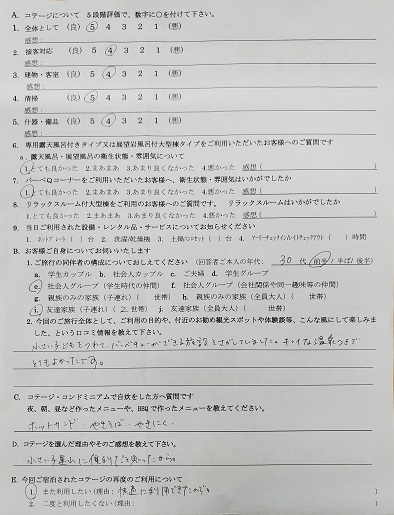 A. コテージについて 5段階評価で、数字に○を付けて下さい。
1. 全体として (良) 5 4 3 2 1 (悪)
感想:
2. 接客対応 (良) 5 4 3 2 1 (悪)
感想:
3. 建物・客室 (良) 5 4 3 2 1 (悪)
感想:
4. 清掃 (良) 5 4 3 2 1 (悪)
感想:
5. 什器・備品 (良) 5 4 3 2 1 (悪)
感想:
6. 専用露天風呂付きタイプ又は展望岩風呂付大型棟タイプをご利用いただいたお客様へのご質問です
a. 露天風呂・展望風呂の衛生状態・雰囲気について
1.とても良かった 2.まあまあ 3.あまり良くなかった 4.悪かった 感想( )
7. バーベQコーナーをご利用いただいたお客様へ、衛生状態・雰囲気はいかがでしたか
1.とても良かった 2.まあまあ 3.あまり良くなかった 4.悪かった 感想( )
8. リラックスルーム付大型棟をご利用のお客様へのご質問です。 リラックスルームはいかがでしたか
1.とても良かった 2.まあまあ 3.あまり良くなかった 4.悪かった 感想( )
9. 当日ご利用された設備・レンタル品・サービスについてお知らせください
1. ホットプレート( )台 2. 洗濯/乾燥機 3. ( )台 4. アーリーチェックイン/レイトチェックアウト( )時間
B. お客様ご自身についてお伺いいたします
1. ご旅行の同伴者の構成についておしえてください (回答者ご本人の年代: 30 代 前半/半ば/後半)
a. 学生カップル b. 社会人カップル c. ご夫婦 d. 学生グループ
e. 社会人グループ(学生時代の仲間) f. 社会人グループ(会社関係や同一趣味等の仲間)
g. 親族のみの家族(子連れ)( 世帯) h. 親族のみの家族(全員大人)( 世帯)
i. 友達家族(子連れ)( 2 世帯) j. 友達家族(全員大人)( 世帯)
2. 今回のご旅行全体として、ご利用の目的や、付近のお勧め観光スポットや体験談等、こんな風にして楽しみました、という口コミ情報を教えて下さい。
小さい子どもをつれて、バーベキューができる施設をさがしていました。キレイな温泉つきで
とてもよかったです。
C. コテージ・コンドミニアムで自炊をした方へ質問です
夜、朝、昼など作ったメニューや、BBQで作ったメニューを教えてください。
ホットサンド・やきそば・やきにく
D. コテージを選んだ理由やそのご感想を教えて下さい。
小さい子連れに便利だと思ったから。
E. 今回ご宿泊されたコテージの再度のご利用について
1. また利用したい(理由: 快適に利用できたので。
2. 二度と利用したくない(理由: